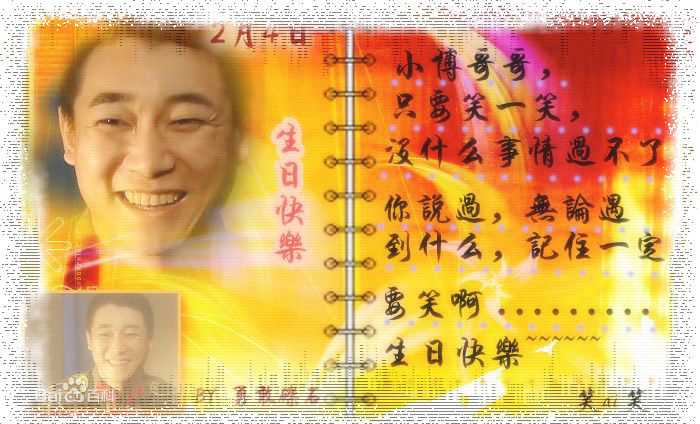 2月4日
生日快樂
BY
Baidu百科
小博哥哥，
只要笑一笑，
沒什么事情過不了
你說過，無論遇
到什么，記住一定
要笑啊.........
生日快樂~~~~~~